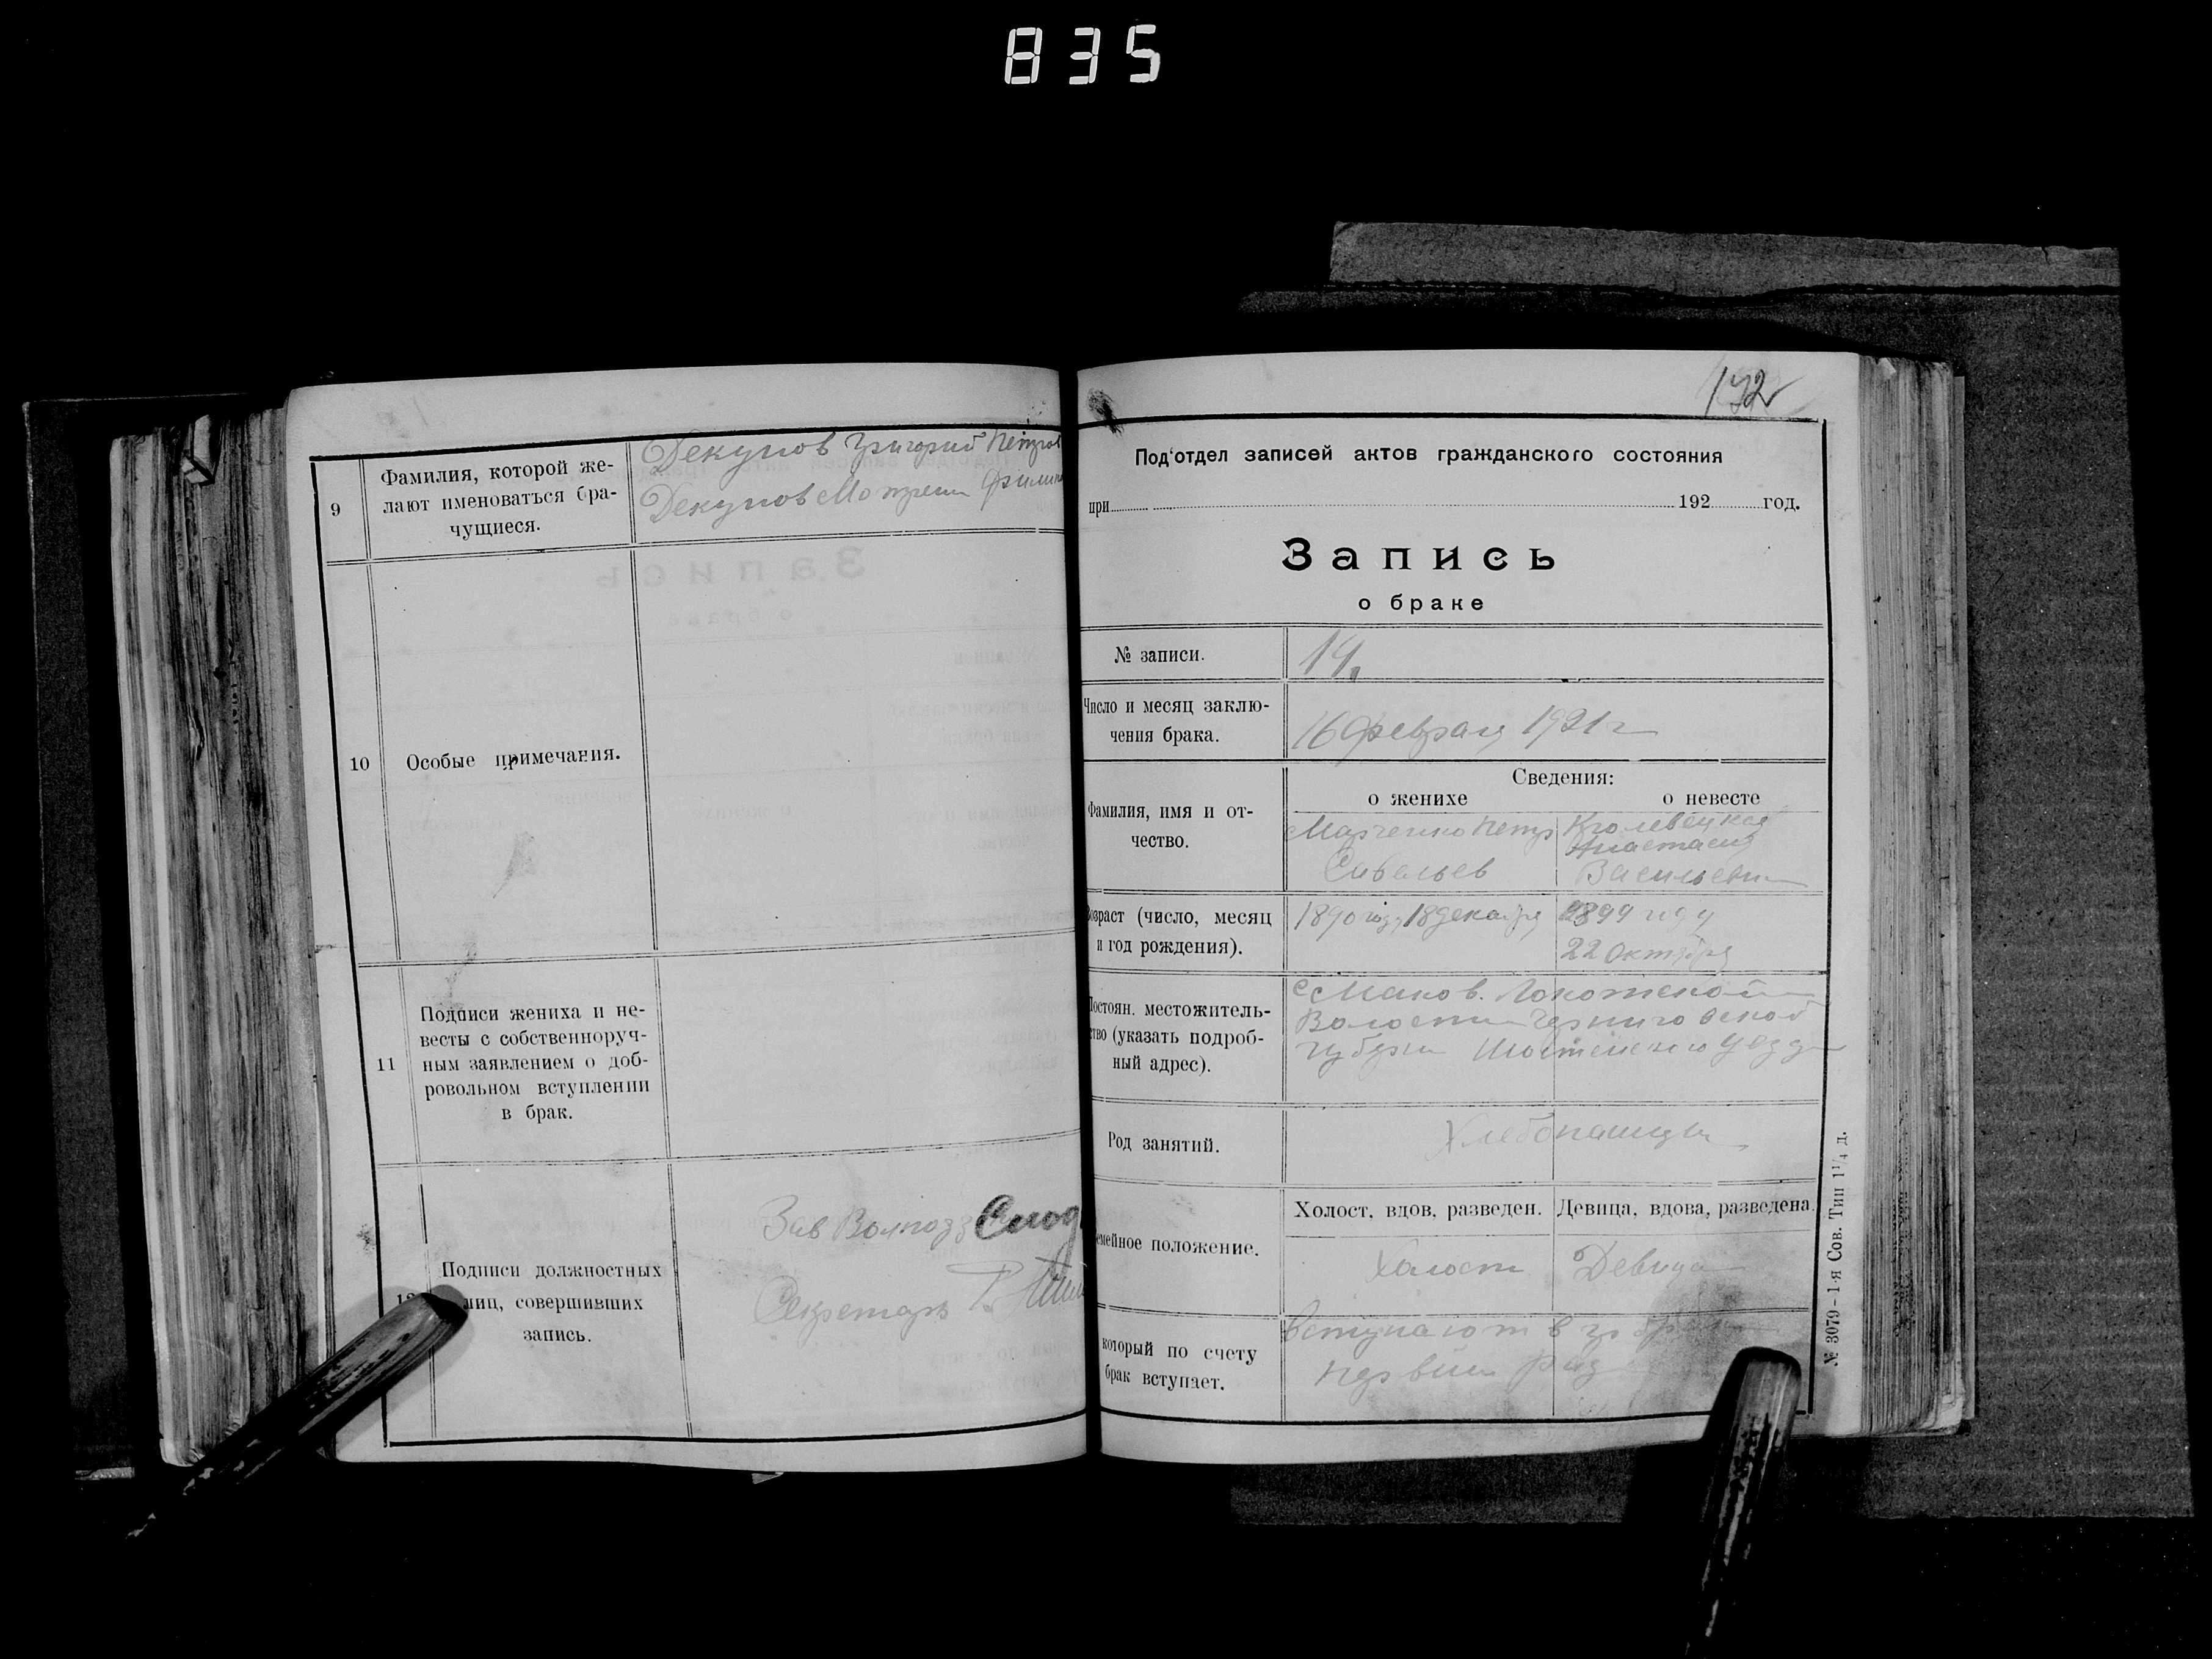 835
9
Фамилия, которой же-
лают именоваться бра-
чущиеся.
Декунов Григорий Петров
Декунов Мотрена Филип
10
Особые примечания.
11
Подписи жениха и не-
весты с собственноруч-
ным заявлением о доб-
ровольном вступлении
в брак.
12
Подписи должностных
лиц, совершивших
запись.
Зав
Секретарь
192
Под‘отдел записей актов гражданского состояния
при 192 год.
Запись
о браке
№ записи.
14
Число и месяц заклю-
чения брака.
16 февраля 1921 г
Сведения:
о женихе
о невесте
Фамилия, имя и от-
чество.
Марченко Петр
Савельев
Кролевецкая
Анастасия
Васильевна
Возраст (число, месяц
и год рождения).
1890 году 18 декабря
1899 году
22 Октября
Постоян. местожитель-
ство (указать подроб-
ный адрес).
с Маков. Локотской
Волости Черниговской
губерни Шостенского уезда
Род занятий.
Хлебопашцы
Семейное положение.
Холост, вдов, разведен.
Девица, вдова, разведена.
Холост
Девица
который по счету
брак вступает.
Вступают в
первый раз
№ 3079–1-я Сов. Тип 1¹/₄ д.